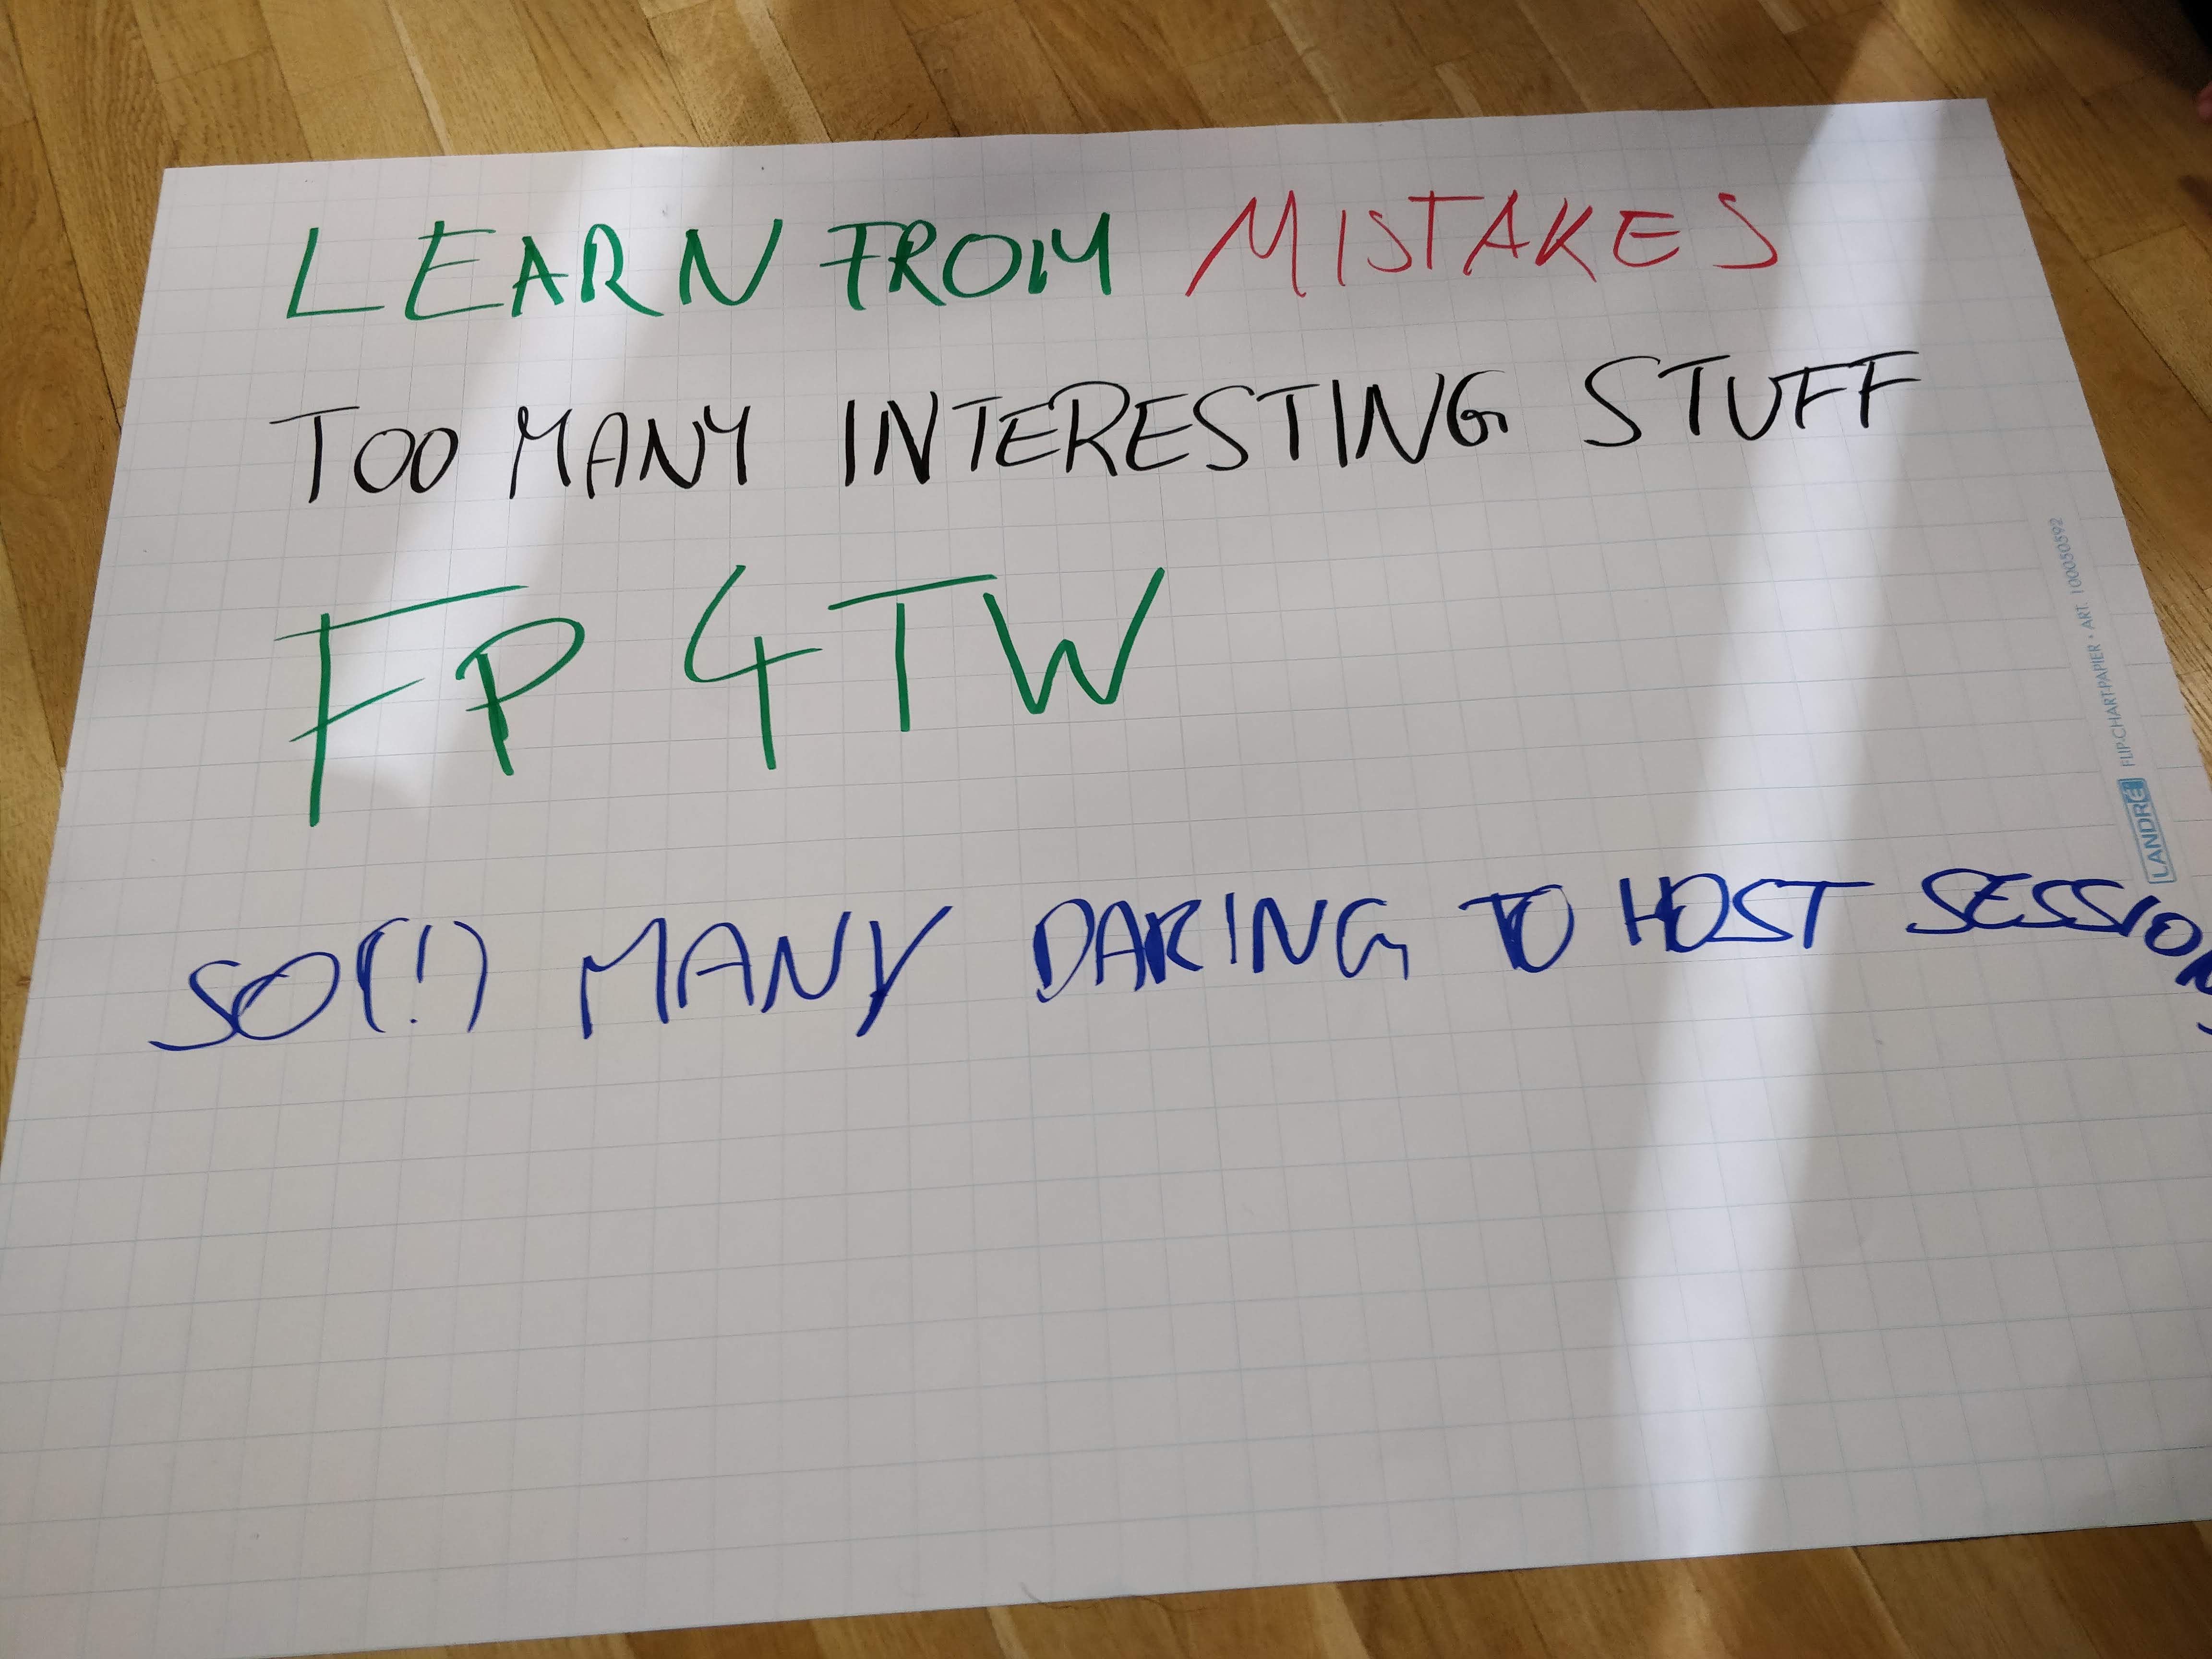 LEARN FROM MISTAKES
TOO MANY INTERESTING STUFF
FP 4TW
SO(!) MANY DARING TO HOST SESSIONS
LANDRÉ FLIP-CHART-PAPIER • ART. 100050592